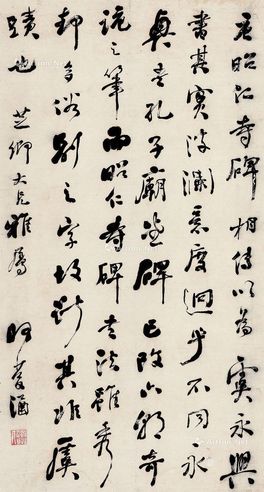 昭仁寺碑相傳以為虞永興
書其實波瀾意度迥乎不同永
興書孔子廟堂碑已改六朝奇
詭之筆而昭仁寺碑書法雖秀
却多俗別之字故斷其非虞
蹟也 芝卿大兄雅屬